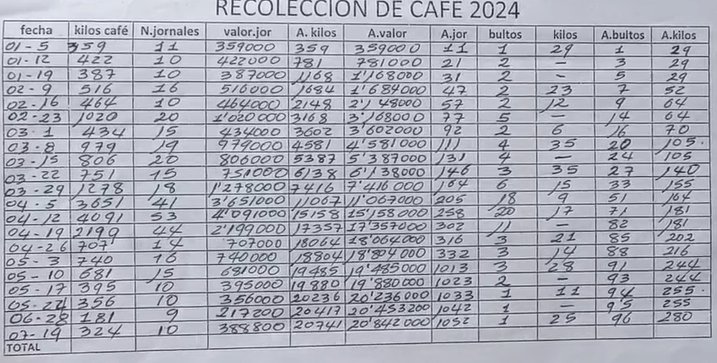 RECOLECCION DE CAFE 2024
fecha kilos café N.jornales valor.jor A. kilos A.valor A.jor bultos kilos A.bultos A.kilos
01-5 359 11 359000 359 359000 11 1 29 1 29
01-12 422 10 422000 781 781000 21 2 - 3 29
01-19 387 10 387000 1168 1'168000 31 2 - 5 29
02-9 516 16 516000 1684 1'684000 47 2 23 7 52
02-16 464 10 464000 2148 2'148000 57 2 12 9 64
02-23 1020 20 1'020000 3168 3'168000 77 5 - 14 64
03-1 434 15 434000 3602 3'602000 92 2 6 16 70
03-8 979 19 979000 4581 4'581000 111 4 35 20 105.
03-15 806 20 806000 5387 5'387000 131 4 - 24 105
03-22 751 15 751000 6138 6'138000 146 3 35 27 140
03-29 1278 18 1'278000 7416 7'416000 164 6 15 33 155
04-5 3651 41 3'651000 11067 11'067000 205 18 9 51 164
04-12 4091 53 4'091000 15158 15'158000 258 20 17 71 181
04-19 2199 44 2'199000 17357 17'357000 302 11 - 82 181
04-26 707 14 707000 18064 18'064000 316 3 21 85 202
05-3 740 16 740000 18804 18'804000 332 3 14 88 216
05-10 681 15 681000 19485 19'485000 1013 3 28 91 244
05-17 395 10 395000 19880 19'880000 1023 2 - 93 244
05-24 356 10 356000 20236 20'236000 1033 1 11 94 255.
06-28 181 9 217200 20417 20'453200 1042 1 - 95 255
07-19 324 10 388800 20741 20'842000 1052 1 25 96 280
TOTAL